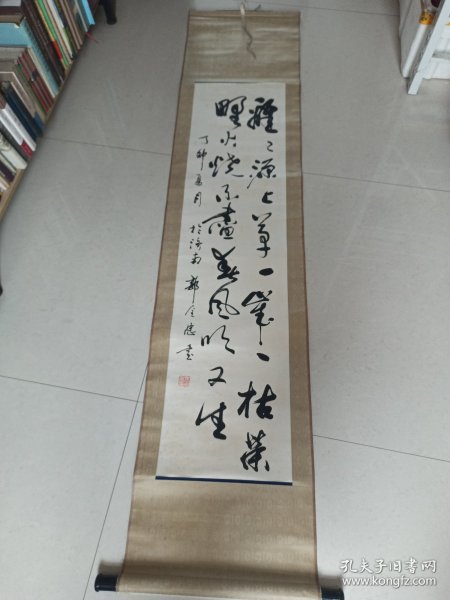 離〻源上草一歲一枯榮
野火燒不盡春風吹又生
丁卯夏月
於濟南 鄭金應書
孔夫子旧书网
www.kongfz.com